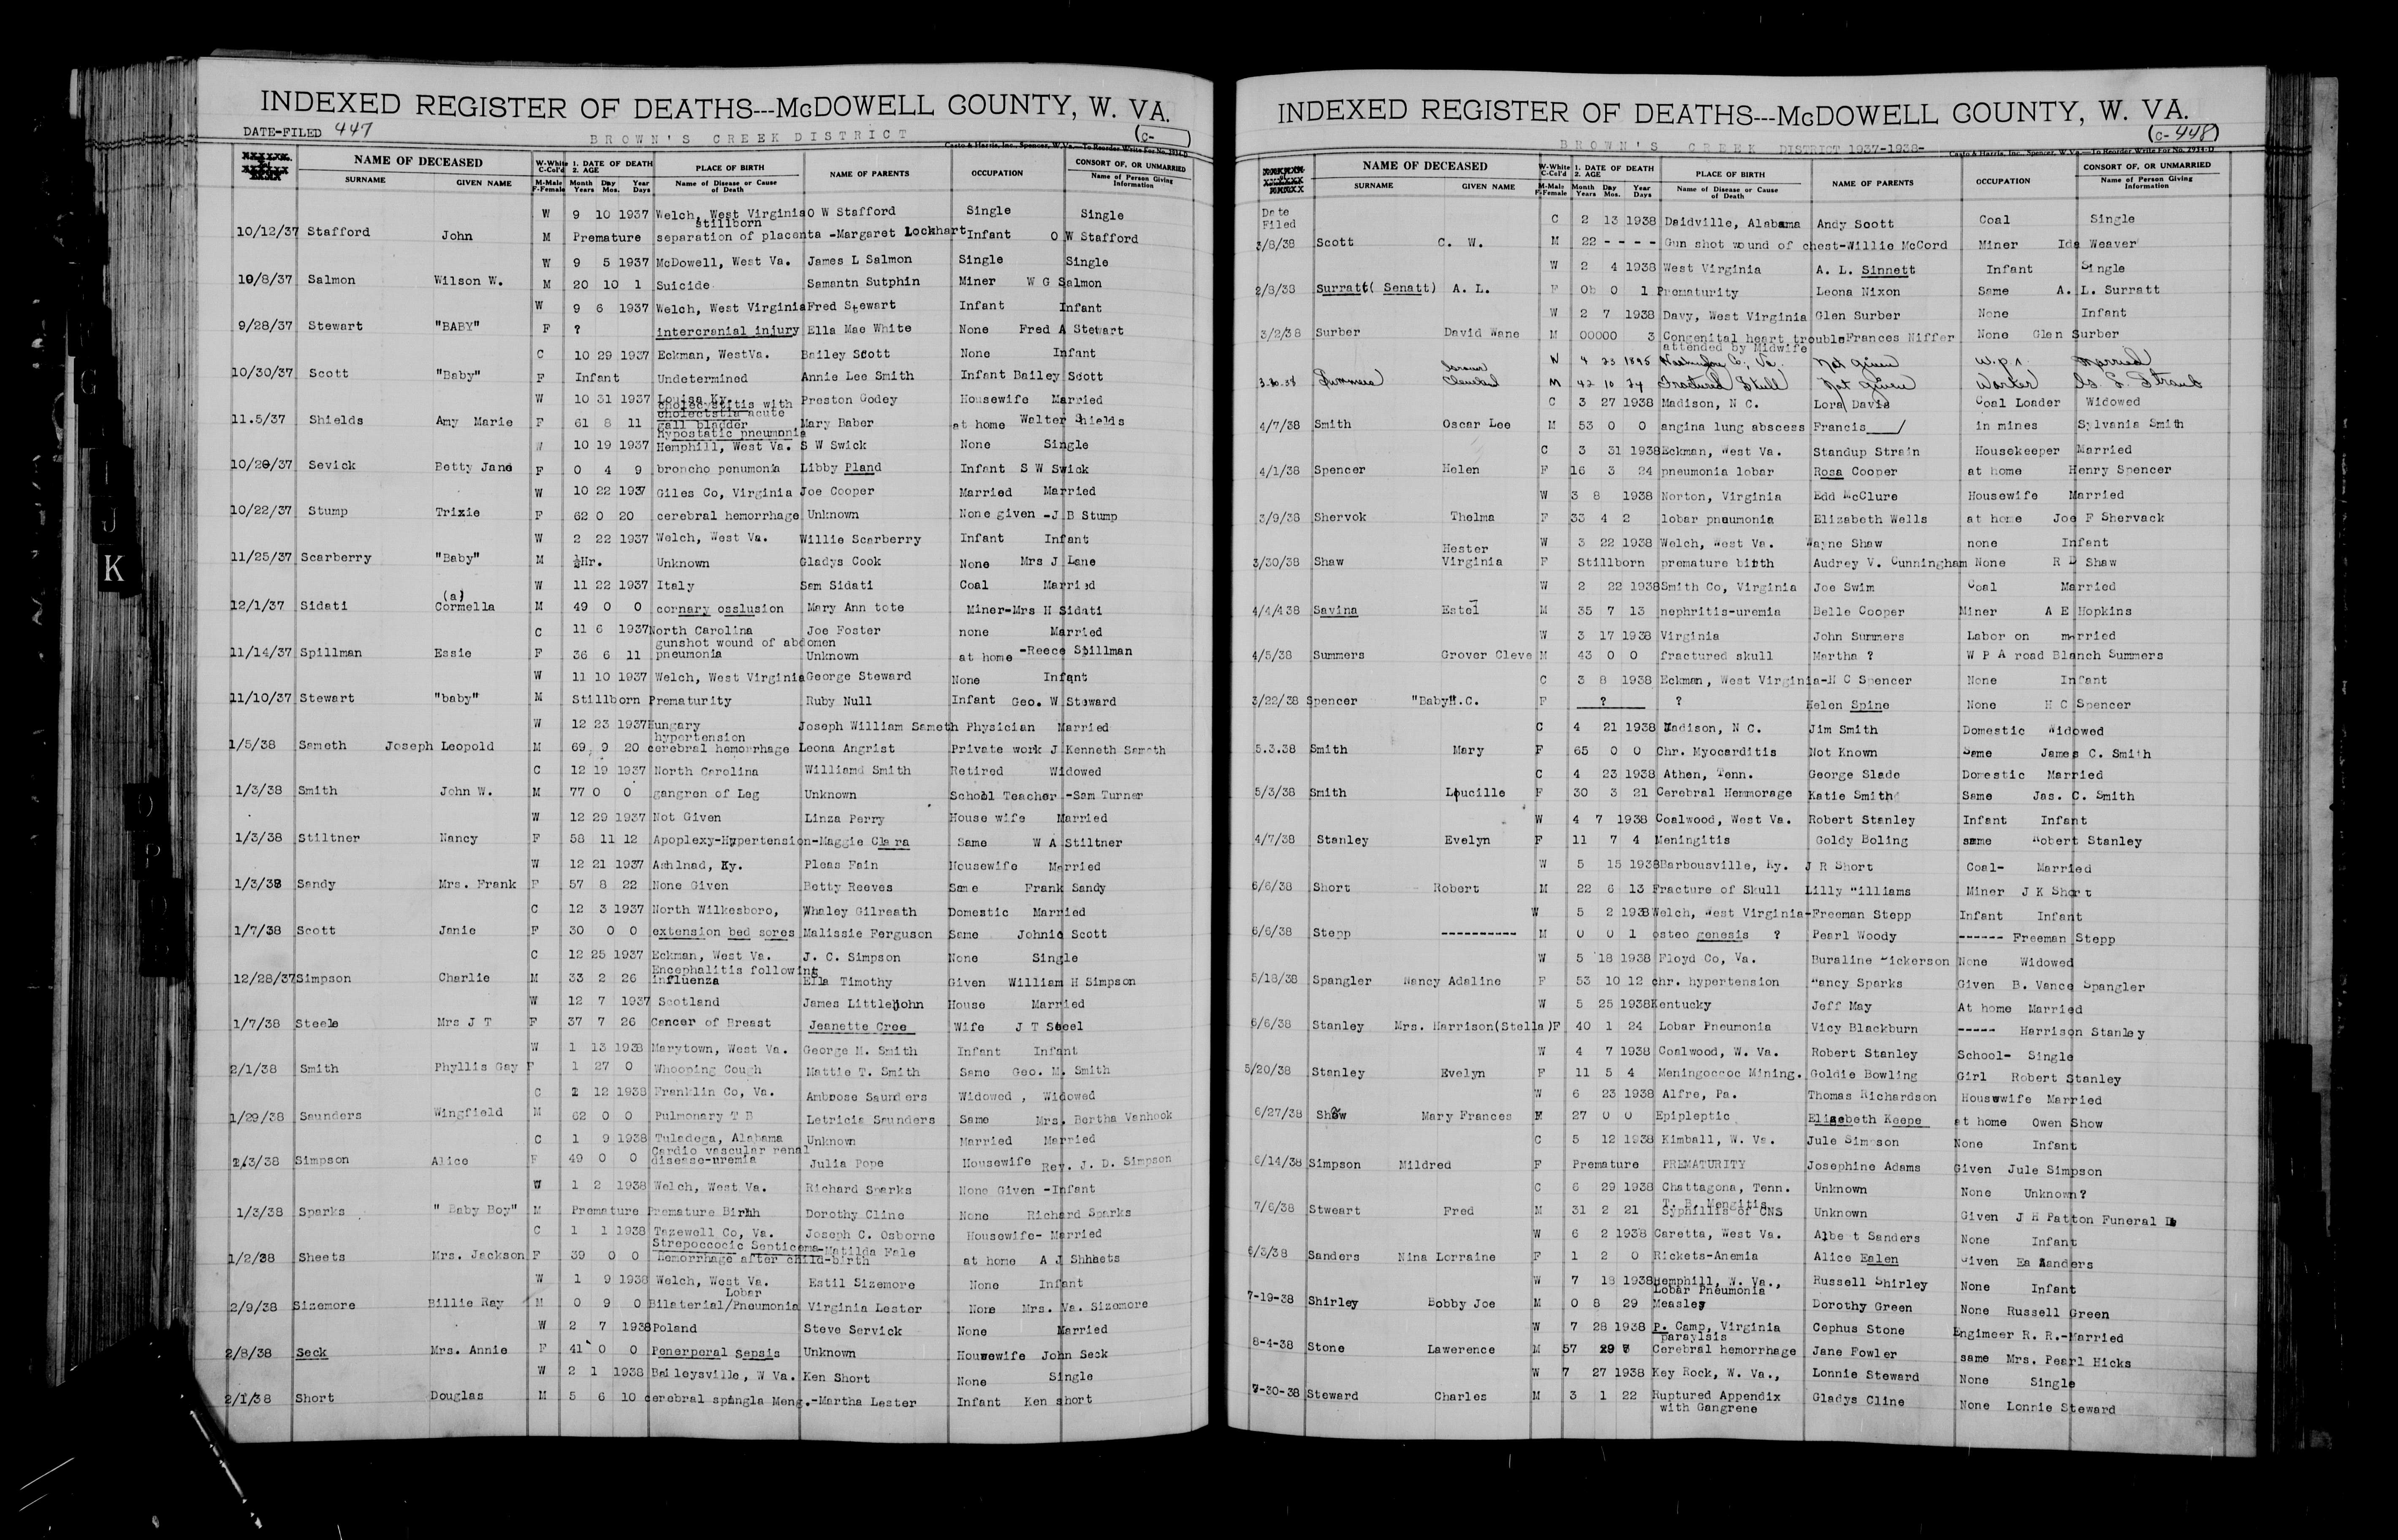 INDEXED REGISTER OF DEATHS---McDOWELL COUNTY, W. VA.
DATE-FILED 447
BROWN'S CREEK DISTRICT
(C- )
Casto & Harris, Inc., Spencer, W. Va.—To Reorder Write For No. 7934-D
NAME OF DECEASED W-White C-Col'd 1. DATE OF DEATH 2. AGE PLACE OF BIRTH NAME OF PARENTS OCCUPATION CONSORT OF, OR UNMARRIED
SURNAME GIVEN NAME M-Male F-Female Month Day Year Years Mos. Days Name of Disease or Cause of Death Name of Person Giving Information
W 9 10 1937 Welch, West Virginia O W Stafford Single Single
stillborn
10/12/37 Stafford John M Premature separation of placenta -Margaret Lockhart Infant O W Stafford
W 9 5 1937 McDowell, West Va. James L Salmon Single Single
10/8/37 Salmon Wilson W. M 20 10 1 Suicide Samantn Sutphin Miner W G Salmon
W 9 6 1937 Welch, West Virginia Fred Stewart Infant Infant
9/28/37 Stewart "BABY" F ? intercranial injury Ella Mae White None Fred A Stewart
C 10 29 1937 Eckman, WestVa. Bailey Scott None Infant
10/30/37 Scott "Baby" F Infant Undetermined Annie Lee Smith Infant Bailey Scott
W 10 31 1937 Louisa Ky. Preston Godey Housewife Married
cholecystitis with
cholectstia acute
11.5/37 Shields Amy Marie F 61 8 11 gall bladder Mary Baber at home Walter Shields
Hypostatic pneumonia
W 10 19 1937 Hemphill, West Va. S W Swick None Single
10/20/37 Sevick Betty Jane F 0 4 9 broncho penumonia Libby Pland Infant S W Swick
W 10 22 1937 Giles Co, Virginia Joe Cooper Married Married
10/22/37 Stump Trixie F 62 0 20 cerebral hemorrhage Unknown None given -J B Stump
W 2 22 1937 Welch, West Va. Willie Scarberry Infant Infant
11/25/37 Scarberry "Baby" M ½Hr. Unknown Gladys Cook None Mrs J Lane
W 11 22 1937 Italy Sam Sidati Coal Married
(a)
12/1/37 Sidati Cormella M 49 0 0 cornary osslusion Mary Ann tote Miner-Mrs H Sidati
C 11 6 1937 North Carolina Joe Foster none Married
gunshot wound of abdomen
11/14/37 Spillman Essie F 36 6 11 pneumonia Unknown at home -Reece Spillman
W 11 10 1937 Welch, West Virginia George Steward None Infant
11/10/37 Stewart "baby" M Stillborn Prematurity Ruby Null Infant Geo. W Steward
W 12 23 1937 Hungary Joseph William Sameth Physician Married
hypertension
1/5/38 Sameth Joseph Leopold M 69 9 20 cerebral hemorrhage Leona Angrist Private work J Kenneth Sameth
C 12 19 1937 North Carolina Williamd Smith Retired Widowed
1/3/38 Smith John W. M 77 0 0 gangren of Leg Unknown School Teacher -Sam Turner
W 12 29 1937 Not Given Linza Perry House wife Married
1/3/38 Stiltner Nancy F 58 11 12 Apoplexy-Hypertension-Maggie Clara Same W A Stiltner
W 12 21 1937 Ashlnad, Ky. Pleas Fain Housewife Married
1/3/38 Sandy Mrs. Frank F 57 8 22 None Given Betty Reeves Same Frank Sandy
C 12 3 1937 North Wilkesboro, Whaley Gilreath Domestic Married
1/7/38 Scott Janie F 30 0 0 extension bed sores Malissie Ferguson Same Johnie Scott
C 12 25 1937 Eckman, West Va. J. C. Simpson None Single
Encephalitis following
12/28/37 Simpson Charlie M 33 2 26 influenza Ella Timothy Given William H Simpson
W 12 7 1937 Scotland James Littlejohn House Married
1/7/38 Steele Mrs J T F 37 7 26 Cancer of Breast Jeanette Cree Wife J T Steel
W 1 13 1938 Marytown, West Va. George M. Smith Infant Infant
2/1/38 Smith Phyllis Gay F 1 27 0 Whooping Cough Mattie T. Smith Same Geo. M. Smith
C 1 12 1938 Franklin Co, Va. Ambrose Saunders Widowed , Widowed
1/29/38 Saunders Wingfield M 62 0 0 Pulmonary T B Letricia Saunders Same Mrs. Bertha Vanhook
C 1 9 1938 Tuladega, Alabama Unknown Married Married
Cardio vascular renal
2/3/38 Simpson Alice F 49 0 0 disease-uremia Julia Pope Housewife Rev. J. D. Simpson
W 1 2 1938 Welch, West Va. Richard Sparks None Given -Infant
1/3/38 Sparks " Baby Boy" M Premature Premature Birhh Dorothy Cline None Richard Sparks
C 1 1 1938 Tazewell Co, Va. Joseph C. Osborne Housewife- Married
Strepoccocic Septicema-Matilda Fale
1/2/38 Sheets Mrs. Jackson F 39 0 0 Hemorrhage after child-birth at home A J Shheets
W 1 9 1938 Welch, West Va. Estil Sizemore None Infant
Lobar
2/9/38 Sizemore Billie Ray M 0 9 0 Bilaterial/Pneumonia Virginia Lester None Mrs. Va. Sizemore
W 2 7 1938 Poland Steve Servick None Married
2/8/38 Seck Mrs. Annie F 41 0 0 Penerperal Sepsis Unknown Housewife John Seck
W 2 1 1938 Baileysville, W Va. Ken Short None Single
2/1/38 Short Douglas M 5 6 10 cerebral spingla Meng.-Martha Lester Infant Ken short
INDEXED REGISTER OF DEATHS---McDOWELL COUNTY, W. VA.
(C-448)
BROWN'S CREEK DISTRICT 1937-1938-
Casto & Harris, Inc., Spencer, W. Va.—To Reorder Write For No. 7934-D
NAME OF DECEASED W-White C-Col'd 1. DATE OF DEATH 2. AGE PLACE OF BIRTH NAME OF PARENTS OCCUPATION CONSORT OF, OR UNMARRIED
SURNAME GIVEN NAME M-Male F-Female Month Day Year Years Mos. Days Name of Disease or Cause of Death Name of Person Giving Information
Date
Filed C 2 13 1938 Daidville, Alabama Andy Scott Coal Single
3/8/38 Scott C. W. M 22 - - - - Gun shot wound of chest-Willie McCord Miner Ida Weaver
W 2 4 1938 West Virginia A. L. Sinnett Infant Single
2/8/38 Surratt( Senatt) A. L. F 0h 0 1 Prematurity Leona Nixon Same A. L. Surratt
W 2 7 1938 Davy, West Virginia Glen Surber None Infant
3/2/38 Surber David Wane M 00000 3 Congenital heart trouble Frances Niffer None Glen Surber
attended by Midwife
W 4 23 1895 Washington Co, Va. Not given W.P.A. Married
Grover
3.30.38 Summers Cleveland M 42 10 24 Fractured Skull Not given Worker
C 3 27 1938 Madison, N C. Lora David Coal Loader Widowed
4/7/38 Smith Oscar Lee M 53 0 0 angina lung abscess Francis___/ in mines Sylvania Smith
C 3 31 1938 Eckman, West Va. Standup Strain Housekeeper Married
4/1/38 Spencer Helen F 16 3 24 pneumonia lobar Rosa Cooper at home Henry Spencer
W 3 8 1938 Norton, Virginia Edd McClure Housewife Married
3/9/38 Shervok Thelma F 33 4 2 lobar pneumonia Elizabeth Wells at home Joe F Shervack
Hester W 3 22 1938 Welch, West Va. Wayne Shaw none Infant
3/30/38 Shaw Virginia F Stillborn premature birth Audrey V. Cunningham None R D Shaw
W 2 22 1938 Smith Co, Virginia Joe Swim Coal Married
4/4/438 Savina Estel M 35 7 13 nephritis-uremia Belle Cooper Miner A E Hopkins
W 3 17 1938 Virginia John Summers Labor on married
4/5/38 Summers Grover Cleve M 43 0 0 fractured skull Martha ? W P A road Blanch Summers
C 3 8 1938 Eckman, West Virginia-H C Spencer None Infant
3/22/38 Spencer "Baby"H.C. F ? ? Helen Spine None H C Spencer
C 4 21 1938 Madison, N C. Jim Smith Domestic Widowed
5.3.38 Smith Mary F 65 0 0 Chr. Myocarditis Not Known Same James C. Smith
C 4 23 1938 Athen, Tenn. George Slade Domestic Married
5/3/38 Smith Loucille F 30 3 21 Cerebral Hemmorage Katie Smith Same Jas. C. Smith
W 4 7 1938 Coalwood, West Va. Robert Stanley Infant Infant
4/7/38 Stanley Evelyn F 11 7 4 Meningitis Goldy Boling same Robert Stanley
W 5 15 1938 Barbousville, Ky. J R Short Coal- Married
6/6/38 Short Robert M 22 6 13 Fracture of Skull Lilly Williams Miner J K Short
W 5 2 1938 Welch, West Virginia-Freeman Stepp Infant Infant
6/6/38 Stepp ---------- M 0 0 1 osteo genesis ? Pearl Woody ------ Freeman Stepp
W 5 18 1938 Floyd Co, Va. Buraline Dickerson None Widowed
5/18/38 Spangler Nancy Adaline F 53 10 12 chr. hypertension Nancy Sparks Given B. Vance Spangler
W 5 25 1938 Kentucky Jeff May At home Married
6/6/38 Stanley Mrs. Harrison(Stella)F 40 1 24 Lobar Pneumonia Vicy Blackburn ----- Harrison Stanley
W 4 7 1938 Coalwood, W. Va. Robert Stanley School- Single
5/20/38 Stanley Evelyn F 11 5 4 Meningoccoc Mining. Goldie Bowling Girl Robert Stanley
W 6 23 1938 Alfre, Pa. Thomas Richardson Housewife Married
6/27/38 Show Mary Frances F 27 0 0 Epipleptic Elizebeth Keepe at home Owen Show
C 5 12 1938 Kimball, W. Va. Jule Simpson None Infant
6/14/38 Simpson Mildred F Premature PREMATURITY Josephine Adams Given Jule Simpson
C 6 29 1938 Chattagona, Tenn. Unknown None Unknown?
T. B. Mengitis
7/6/38 Stweart Fred M 31 2 21 Syphillis of CNS Unknown Given J H Patton Funeral
W 6 2 1938 Caretta, West Va. Albe t Sanders None Infant
6/3/38 Sanders Nina Lorraine F 1 2 0 Rickets-Anemia Alice Ealen Given Ea Sanders
W 7 18 1938 Hemphill, W. Va., Russell Shirley None Infant
Lobar Pneumonia
7-19-38 Shirley Bobby Joe M 0 8 29 Measles Dorothy Green None Russell Green
W 7 28 1938 P. Camp, Virginia Cephus Stone Engimeer R. R.-Married
paraylsis
8-4-38 Stone Lawerence M 57 29 Cerebral hemorrhage Jane Fowler same Mrs. Pearl Hicks
W 7 27 1938 Key Rock, W. Va., Lonnie Steward None Single
7-30-38 Steward Charles M 3 1 22 Ruptured Appendix Gladys Cline None Lonnie Steward
with Gangrene
G
I
J
K
O
P